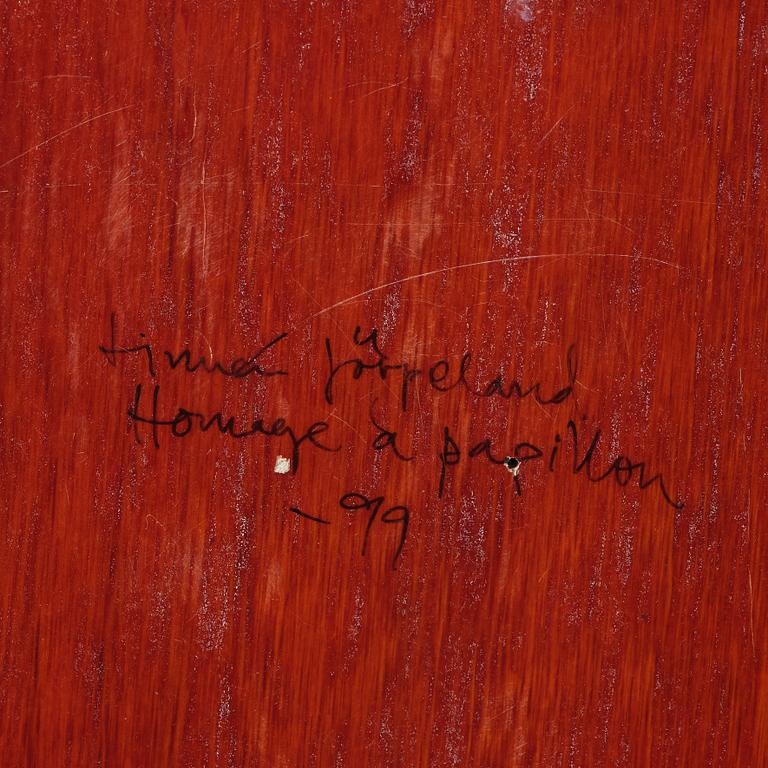 Linnéa Jörpeland
Homage à papillon
-99